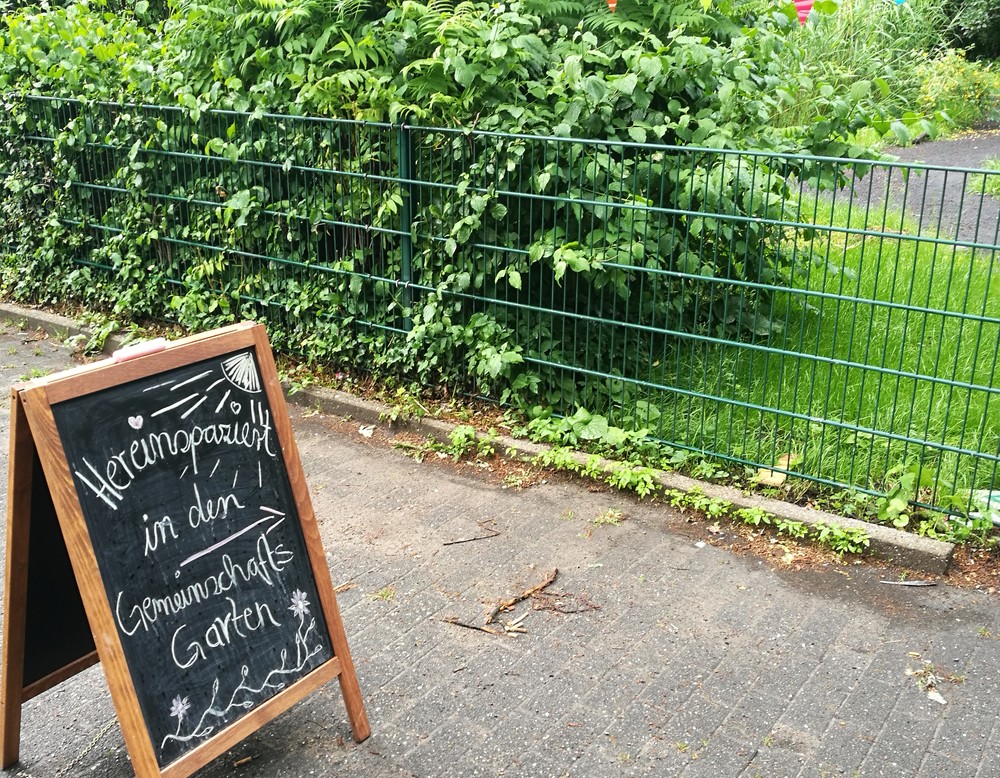 Hereinspaziert
in den
Gemeinschafts
Garten